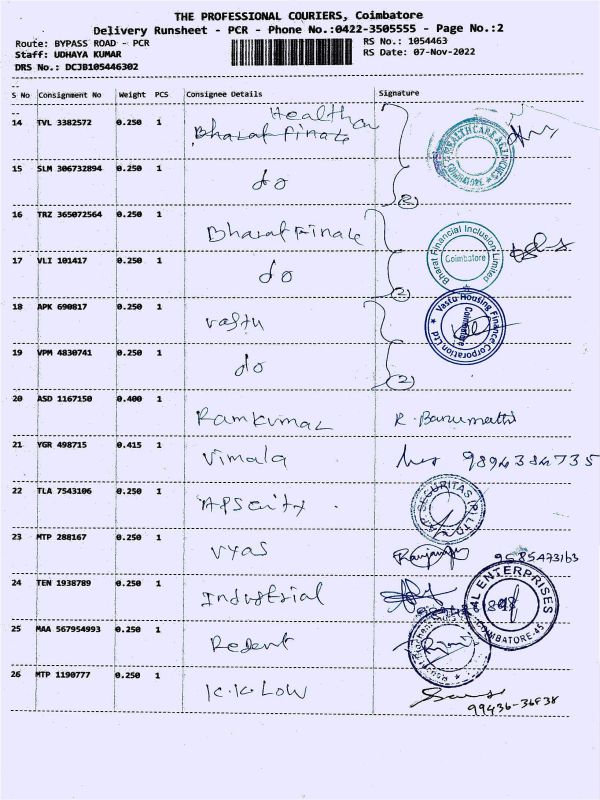 THE PROFESSIONAL COURIERS, Coimbatore
Delivery Runsheet - PCR - Phone No.:0422-3505555 - Page No.:2
Route: BYPASS ROAD - PCR
Staff: UDHAYA KUMAR
DRS No.: DCJB105446302
RS No.: 1054463
RS Date: 07-Nov-2022
S No Consignment No Weight PCS Consignee Details Signature
14 TVL 3382572 0.250 1 Bharat Finale
HEALTHCARE AGENCIES COIMBATORE
15 SLM 306732894 0.250 1 do
2
16 TRZ 365072564 0.250 1 Bharat Finale
Bharat Financial Inclusion Limited Coimbatore
17 VLI 101417 0.250 1 do
2
18 APK 690817 0.250 1 Vastu
Vastu Housing Finance Corporation Ltd Coimbatore
19 VPM 4830741 0.250 1 do
2
20 ASD 1167150 0.400 1 Ramkumar R. Banumathi
21 YGR 498715 0.415 1 Vimala 9894384735
22 TLA 7543106 0.250 1
23 MTP 288167 0.250 1 Vyas 9585473163
24 TEN 1938789 0.250 1 Industrial
ENTERPRISES COIMBATORE-45
25 MAA 567954993 0.250 1
26 MTP 1190777 0.250 1 K.K.Low
99436-36838